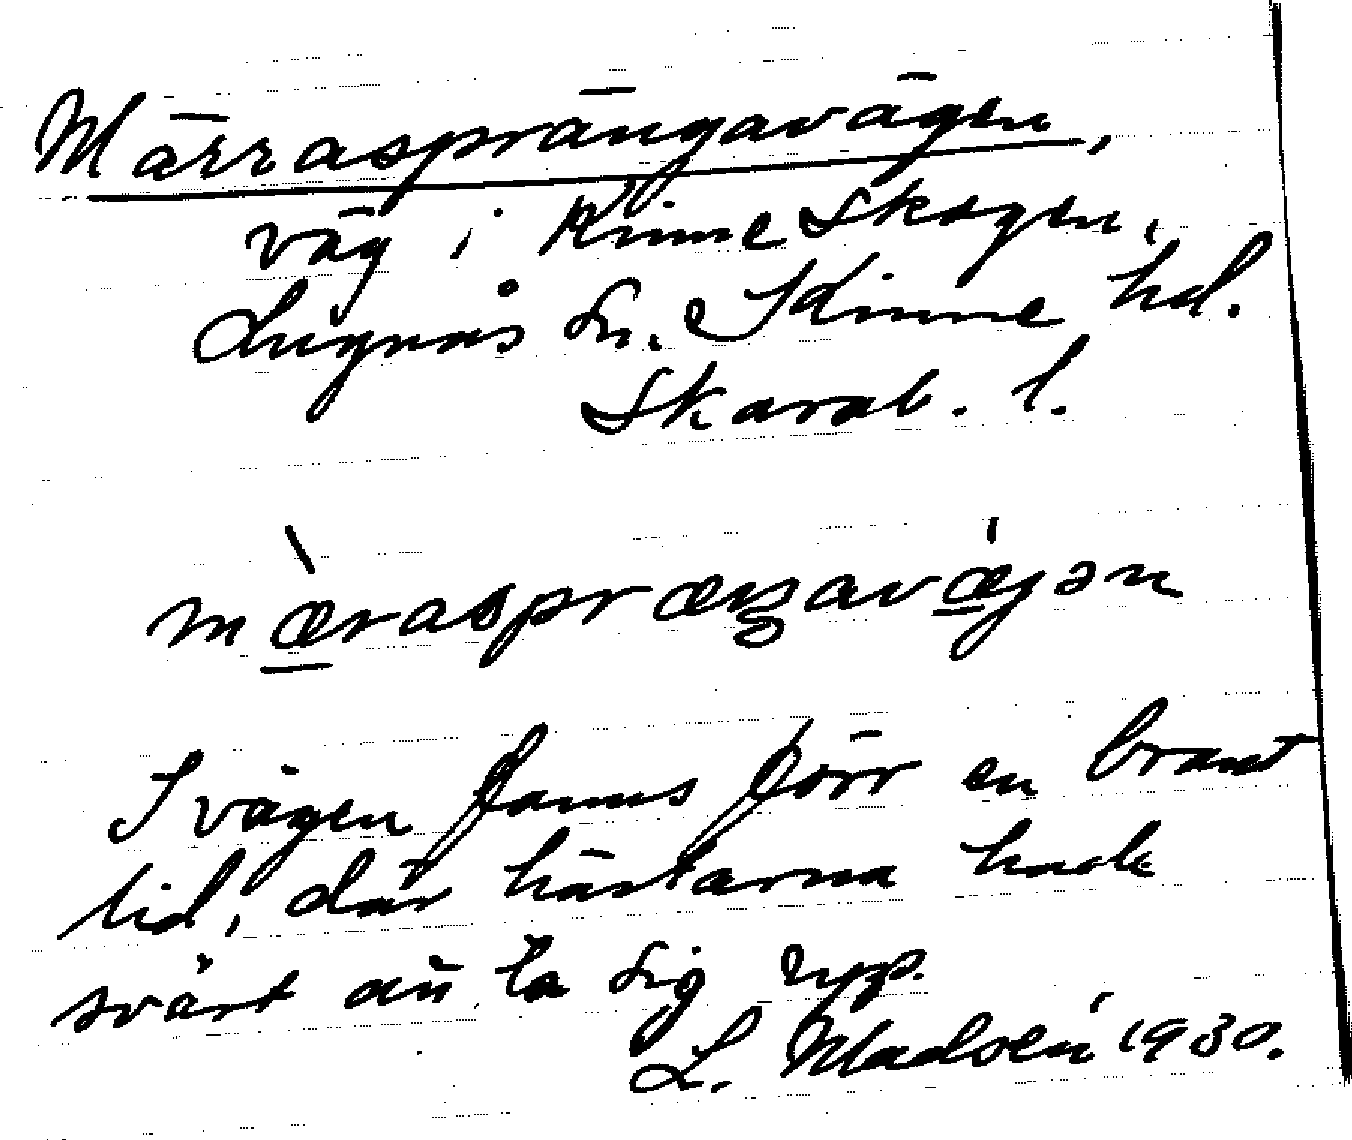 Märrasprängavägen,
väg i Kinneskogen,
Lugnås sn. Kinne hd.
Skarab. l.
mæraspræŋavæjən
I vägen fanns förr en brant
lid, där hästarna hade
svårt att ta sig upp.
L. Madsén 1930.